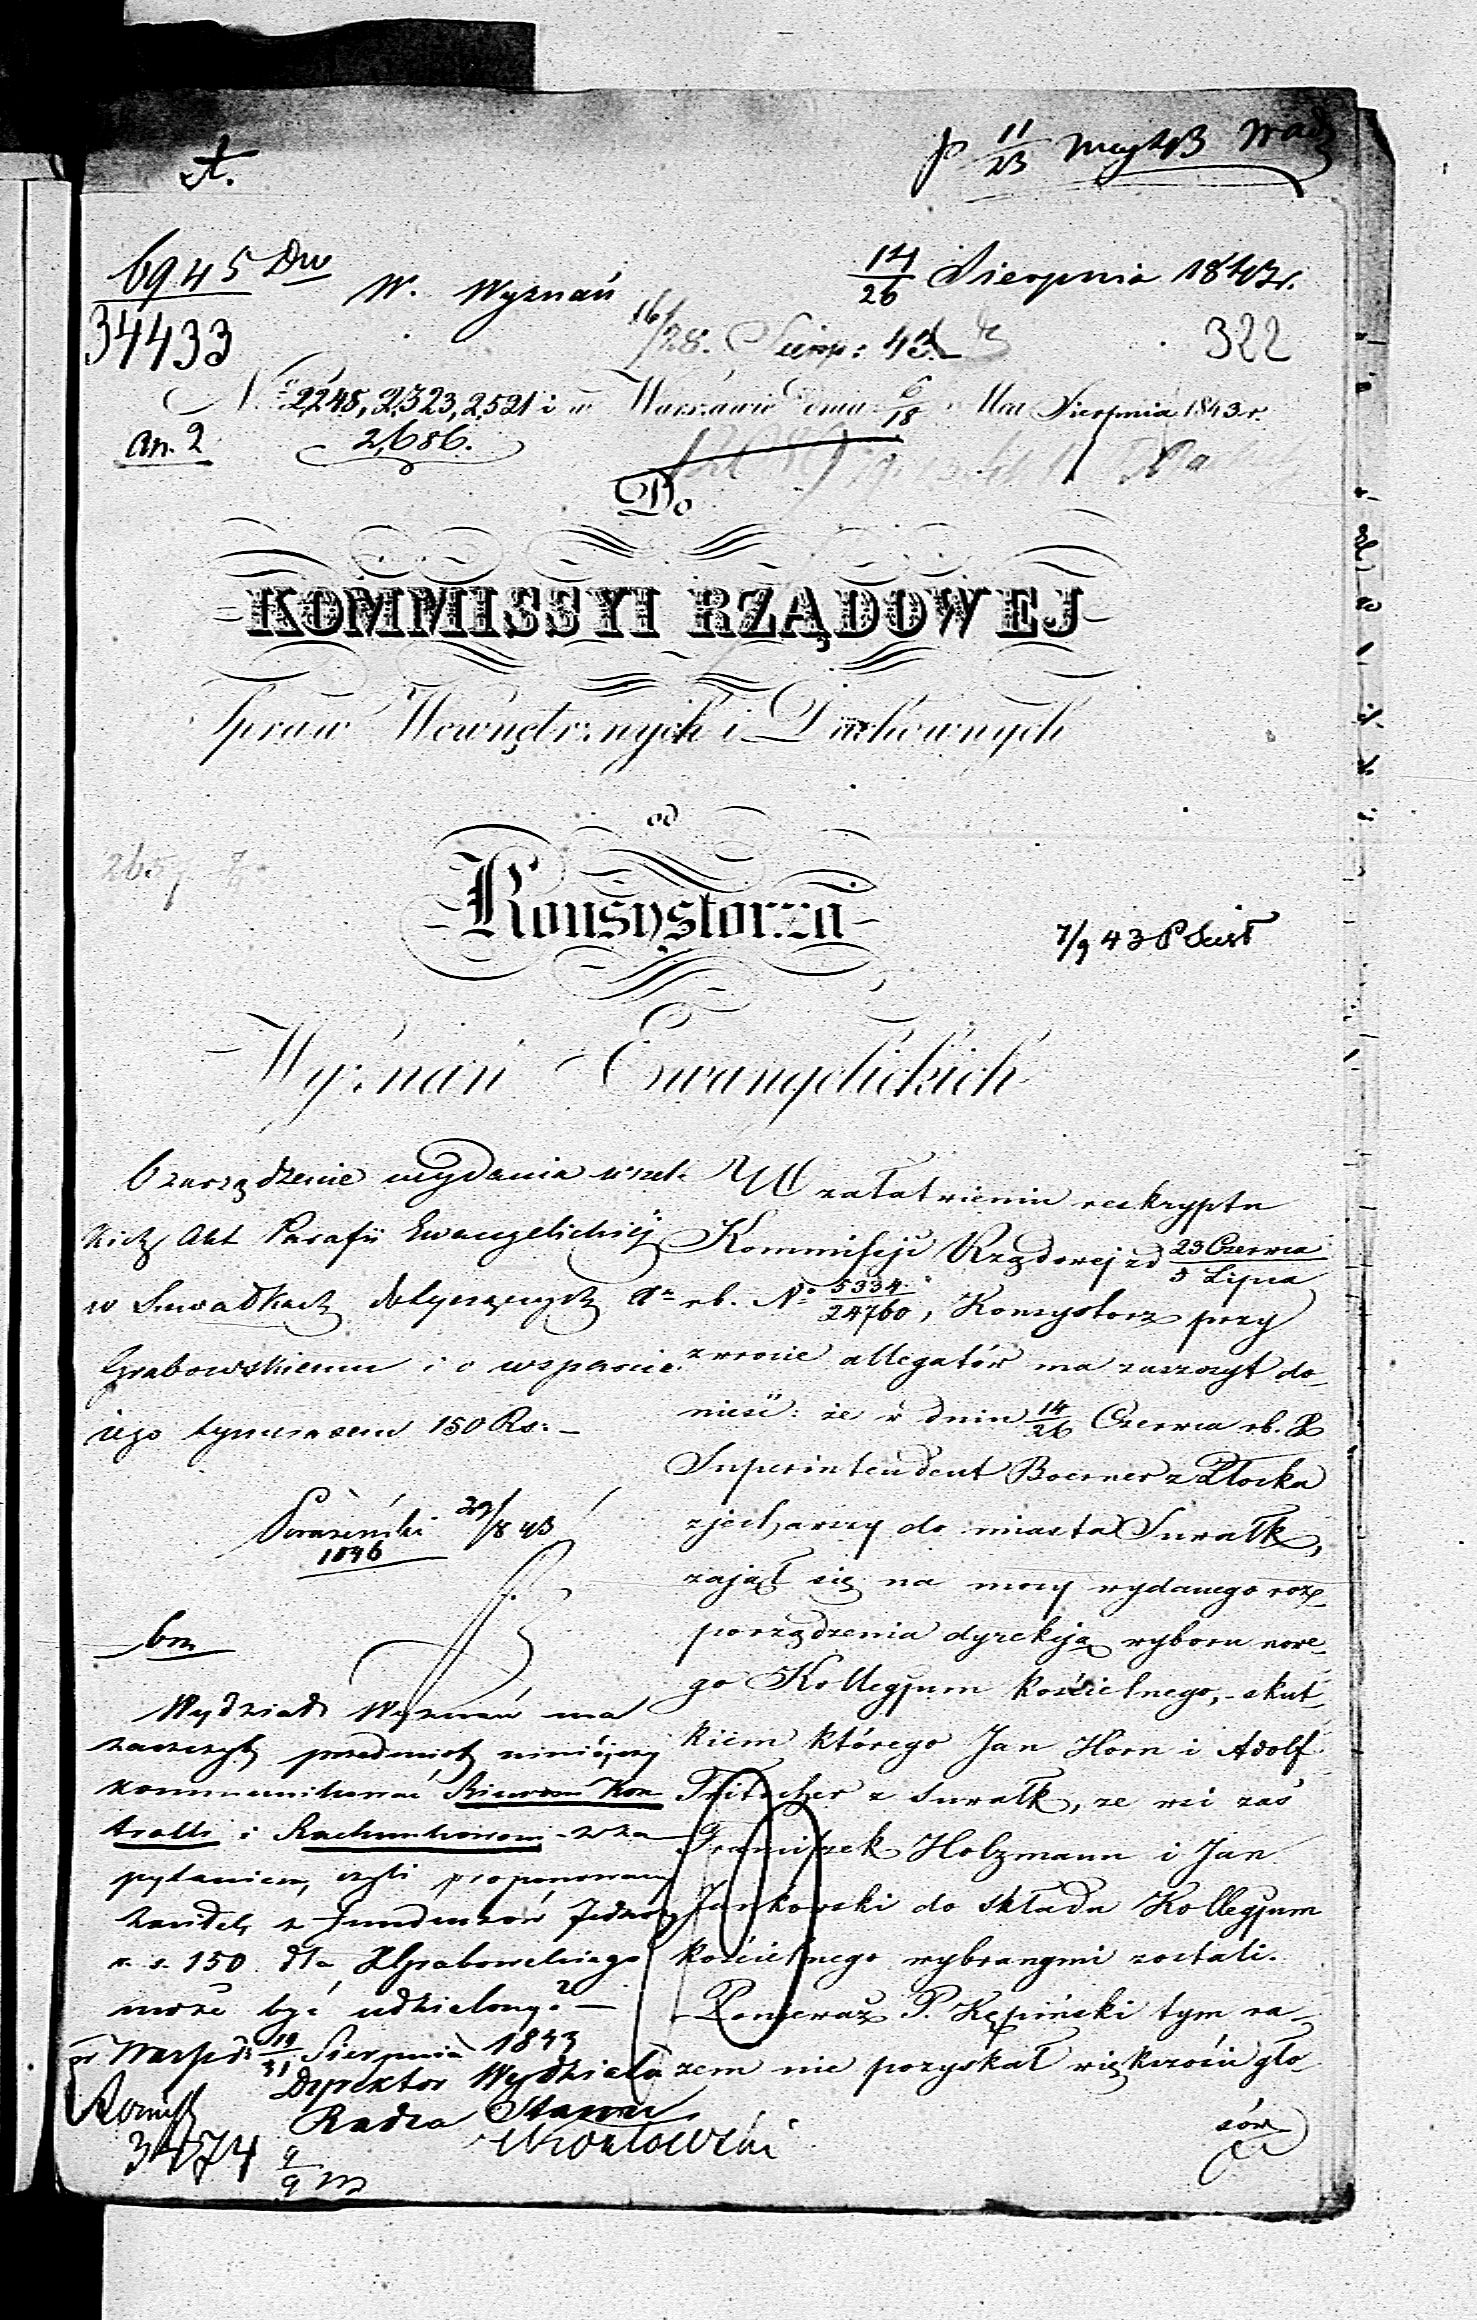 A.
6945 Dw
34433
W. Wyznań
14/26 Sierpnia 1843 r.
16/28. Sierp: 43.
322
No 2248, 2323, 2521 i w Warszawie dnia 6/18 Mca Sierpnia 1843 r.
2686.
an. 2
Do
KOMMISSYI RZĄDOWEJ
Spraw Wewnętrznych i Duchownych
od
Konsystorza
7/9 43
Wyznań Ewangelickich
O zarządzenie wydania wszel-
kich Akt Parafii Ewangelickiéj
w Suwałkach dotyczących
Grabowskiemu i o wsparcie
jego tymczasem 150 Rs: –
29/8 43
1046
Wydział Wyznań ma
zaszczyt przedmiot niniéjszy
kommunikować Biurom Kon-
trolli i Rachunkowemu z za-
pytaniem, czyli proponowany
zasiłek z funduszów
r. s. 150 dla X Grabowskiego
może być udzielony? –
19/31 Sierpnia 1843
Dyrektor Wydziału
Radca Stanu
Kozłowski
3474
W załatwieniu reskryptu
Kommissyi Rządowej zd 23 Czerwca/5 Lipca
rb. No 5334/24760, Konsystorz przy
zwrocie allegatów ma zaszczyt do-
nieść: że w dniu 14/26 Czerwca rb. X
Superintendent Boerner z Płocka
zjechawszy do miasta Suwałk,
zajął się na mocy wydanego roz-
porządzenia dyrekcją wyboru nowe-
go Kollegjum kościelnego, skut-
kiem którego Jan Horn i Adolf
Fritscher z Suwałk, ze wsi zaś
Franciszek Holzmann i Jan
Jankowski do składu Kollegjum
kościelnego wybranymi zostali.
Ponieważ P. Kępiński tym ra-
zem nie pozyskał większości gło-
sów